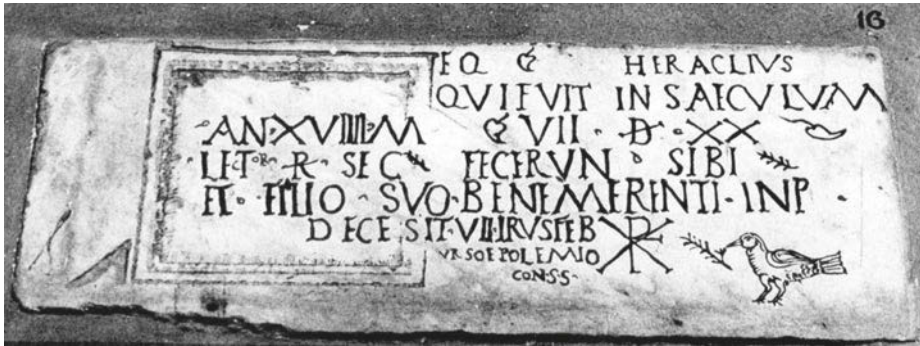 16
EQ HERACLIVS
QVI FVIT IN SAECVLVM
AN·XVIIII·M VII·D·XX
LECTOR·R·SEC FECERVN SIBI
ET·FILIO·SVO·BENEMERENTI·INP
DECESIT·VII·IRVS FEB
VRSO E POLEMIO
CONSS·